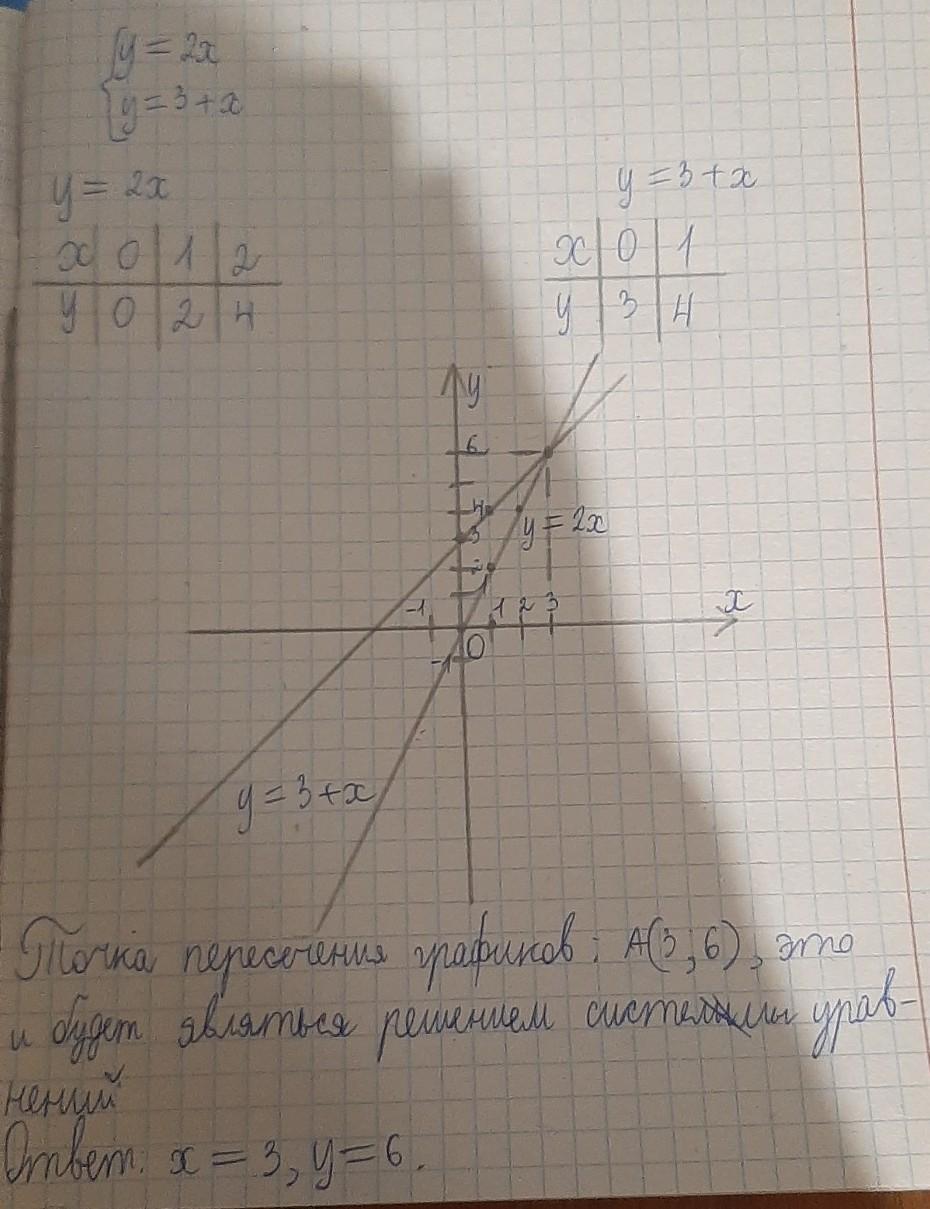 y = 2x
y = 3 + x
y = 2x
y = 3 + x
x 0 1 2
y 0 2 4
x 0 1
y 3 4
y
6
4
y = 2x
3
2
1
-1 1 2 3 x
0
-1
y = 3 + x
Точка пересечения графиков: A(3;6), это
и будет являться решением системы урав-
нений
Ответ: x = 3, y = 6.